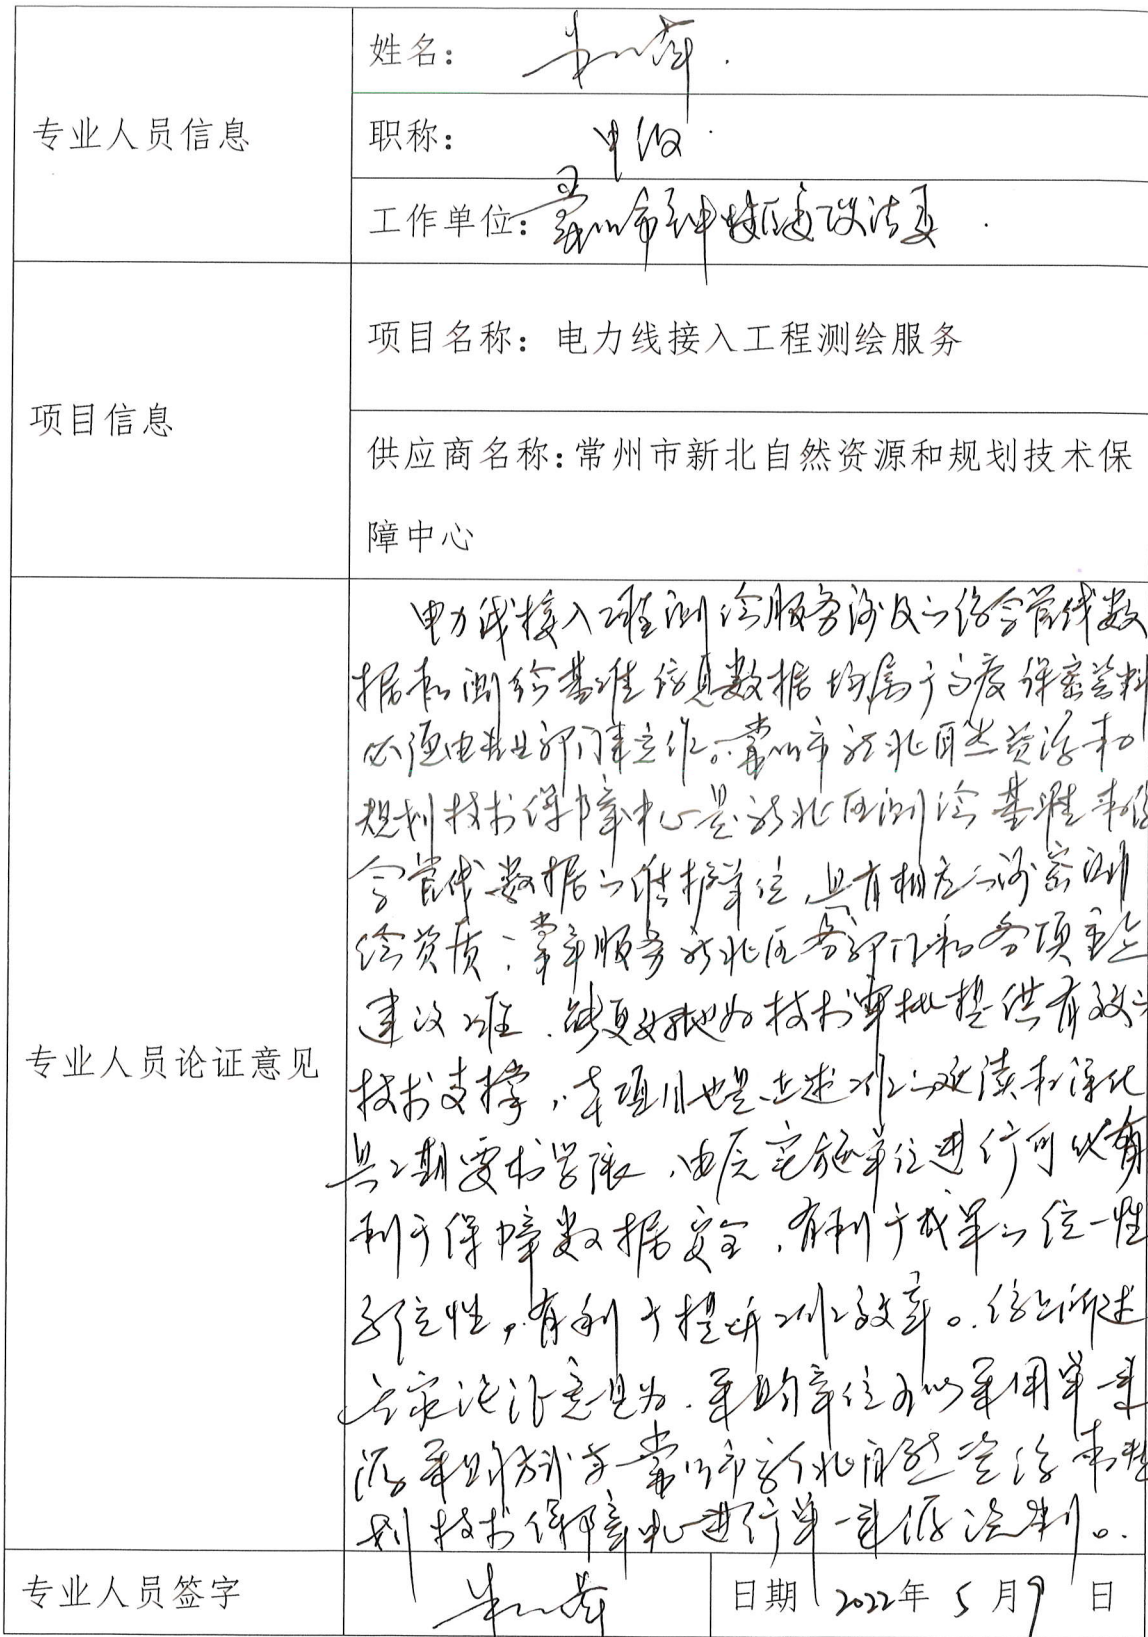 专业人员信息
姓名：
职称：中级
工作单位：
项目信息
项目名称：电力线接入工程测绘服务
供应商名称：常州市新北自然资源和规划技术保
障中心
专业人员论证意见
电力线接入工程测绘服务涉及的综合管线数
据和测绘基准信息数据均属于高度保密资料
必须由专业部门来完作。常州市新北自然资源和
规划技术保障中心是新北区测绘基准和综
合管线数据的维护单位，具有相应的涉密测
绘资质，常年服务新北区各部门和各项重点
建设工程，能更好地为技术审批提供有效的
技术支撑，本项目也是上述工作的延续和深化
具工期要求紧张，由原实施单位进行可以有
利于保障数据安全，有利于成果的统一性
有利于提升工作效率。综上所述
专家论证意见为，采购单位可以采用单一来
源采购方式从常州市新北自然资源和规
划技术保障中心进行单一来源采购。
专业人员签字
日期 2022年 5 月 9 日